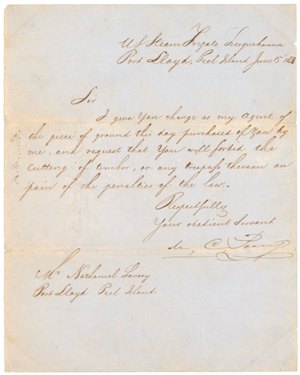 US Steam Frigate Susquehanna
Port Lloyd, Peel Island June 15
Sir
I give you charge as my Agent of
the piece of ground this day purchased of you by
me, and request that you will forbid the
cutting of timber, or any trespass thereon on
pain of the penalties of the law.
Respectfully
Your obedient Servant
M. C. Perry
Mr Nathaniel Savory
Port Lloyd Peel Island